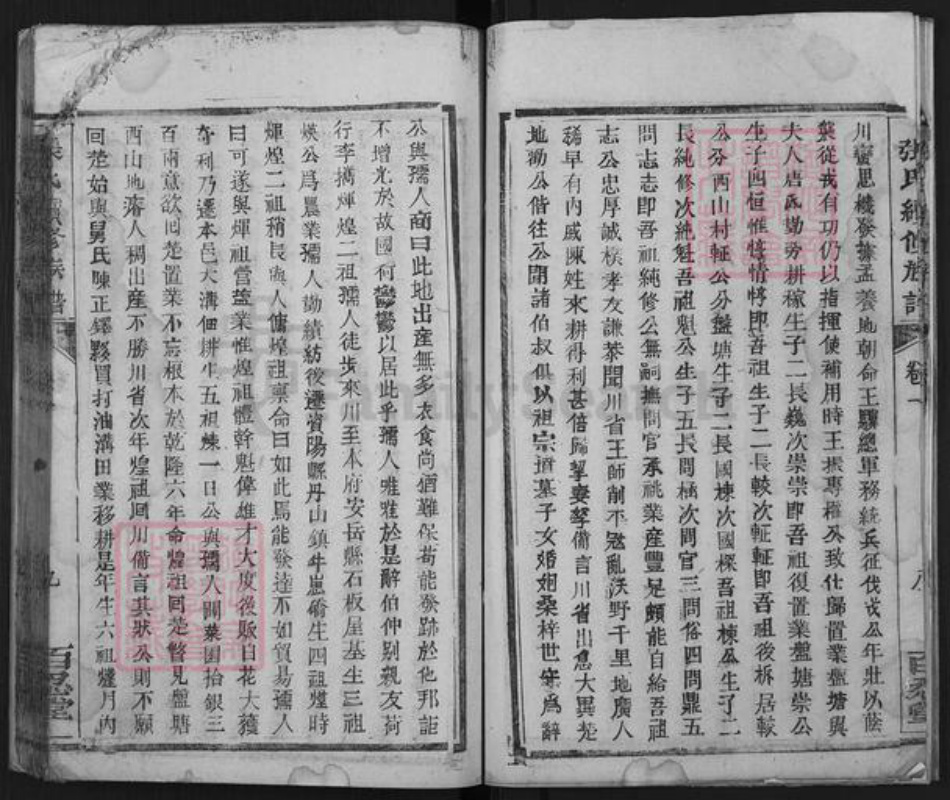 張氏續修族譜 卷一 八 百忍堂
川蠻思機發據孟養地朝命王驥總軍務統兵征伐戎公年壯以蔭
襲從戎有功仍以指揮使補用時王振專權公致仕歸置業盤塘與
夫人唐氏勤勞耕稼生子二長巍次崇崇即吾祖復置業盤塘崇公
生子四恒惟情將即吾祖生子二長較次軏軏即吾祖後析居較
公分西山村軏公分盤塘生子二長國棟次國樑吾祖棟公生子二
長純修次純魁吾祖魁公生子五長問極次問官三問俗四問鼎五
問志志即吾祖純修公無嗣撫問官承祧業產豐足頗能自給吾祖
志公忠厚誠樸孝友謙恭聞川省王師削平寇亂沃野千里地廣人
稀早有內戚陳姓來耕得利甚倍歸挈妻孥備言川省出息大異楚
地勸公偕往公聞諸伯叔俱以祖宗墳墓子女婚姻桑梓世守為辭
公與孺人商曰此地出產無多衣食尚猶難保葛能發跡於他邦詎
不增光於故國何鬱鬱以居此乎孺人唯唯於是辭伯仲別親友荷
行李攜煇煌二祖孺人徒步來川至本府安岳縣石板屋基生三祖
煐公為農業孺人勤績紡後遷資陽縣丹山鎮牛崽礄生四祖煃時
煇煌二祖稍長與人傭煌祖稟命曰如此焉能發達不如貿易孺人
曰可遂與煇祖營塩業惟煌祖體幹魁偉雄才大度後販白花大獲
奇利乃遷本邑大溝佃耕生五祖煉一日公與孺人閒菜園拾銀三
百兩意欲囘楚置業不忘根本於乾隆六年命煌祖囘楚瞥見盤塘
西山地瘠人稠出產不勝川省次年煌祖囘川備言其狀公則不願
囘楚始與舅氏陳正鐸夥買打油溝田業移耕是年生六祖爕月內
張氏續修族譜 九 百忍堂